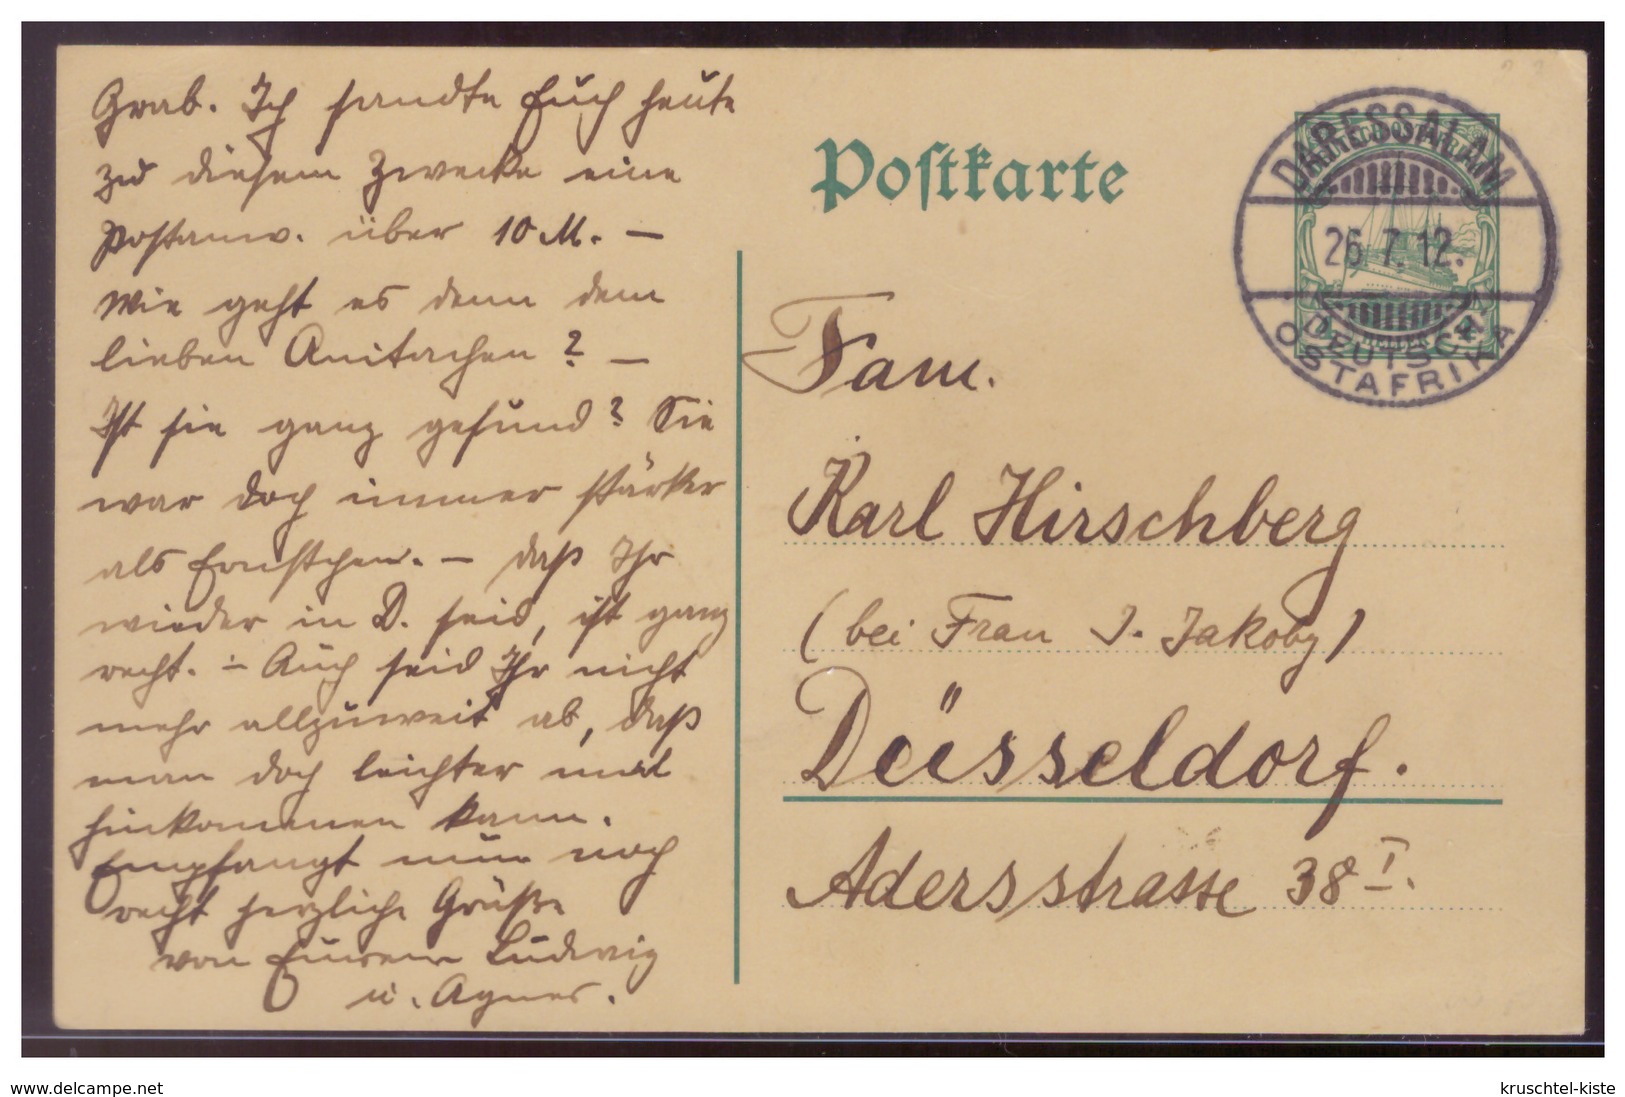 Grab. Ich sandte Euch heute
zu diesem Zwecke eine
Postanw. über 10 M. —
Wie geht es denn dem
lieben Anitachen? —
Ist sie ganz gesund? Sie
war doch immer stärker
als Ernstchen. — Daß Ihr
wieder in D. seid, ist ganz
recht. — Auch seid Ihr nicht
mehr allzuweit ab, daß
man doch leichter mal
hinkommen kann.
Empfangt nun noch
recht herzliche Grüße
von Eurem Ludwig
u. Agnes.
Postkarte
DARESSALAM
26.7.12.
DEUTSCH
OSTAFRIKA
Fam.
Karl Hirschberg
(bei Frau J. Jakoby)
Düsseldorf.
Adersstrasse 38 I.
www.delcampe.net
kruschtel-kiste